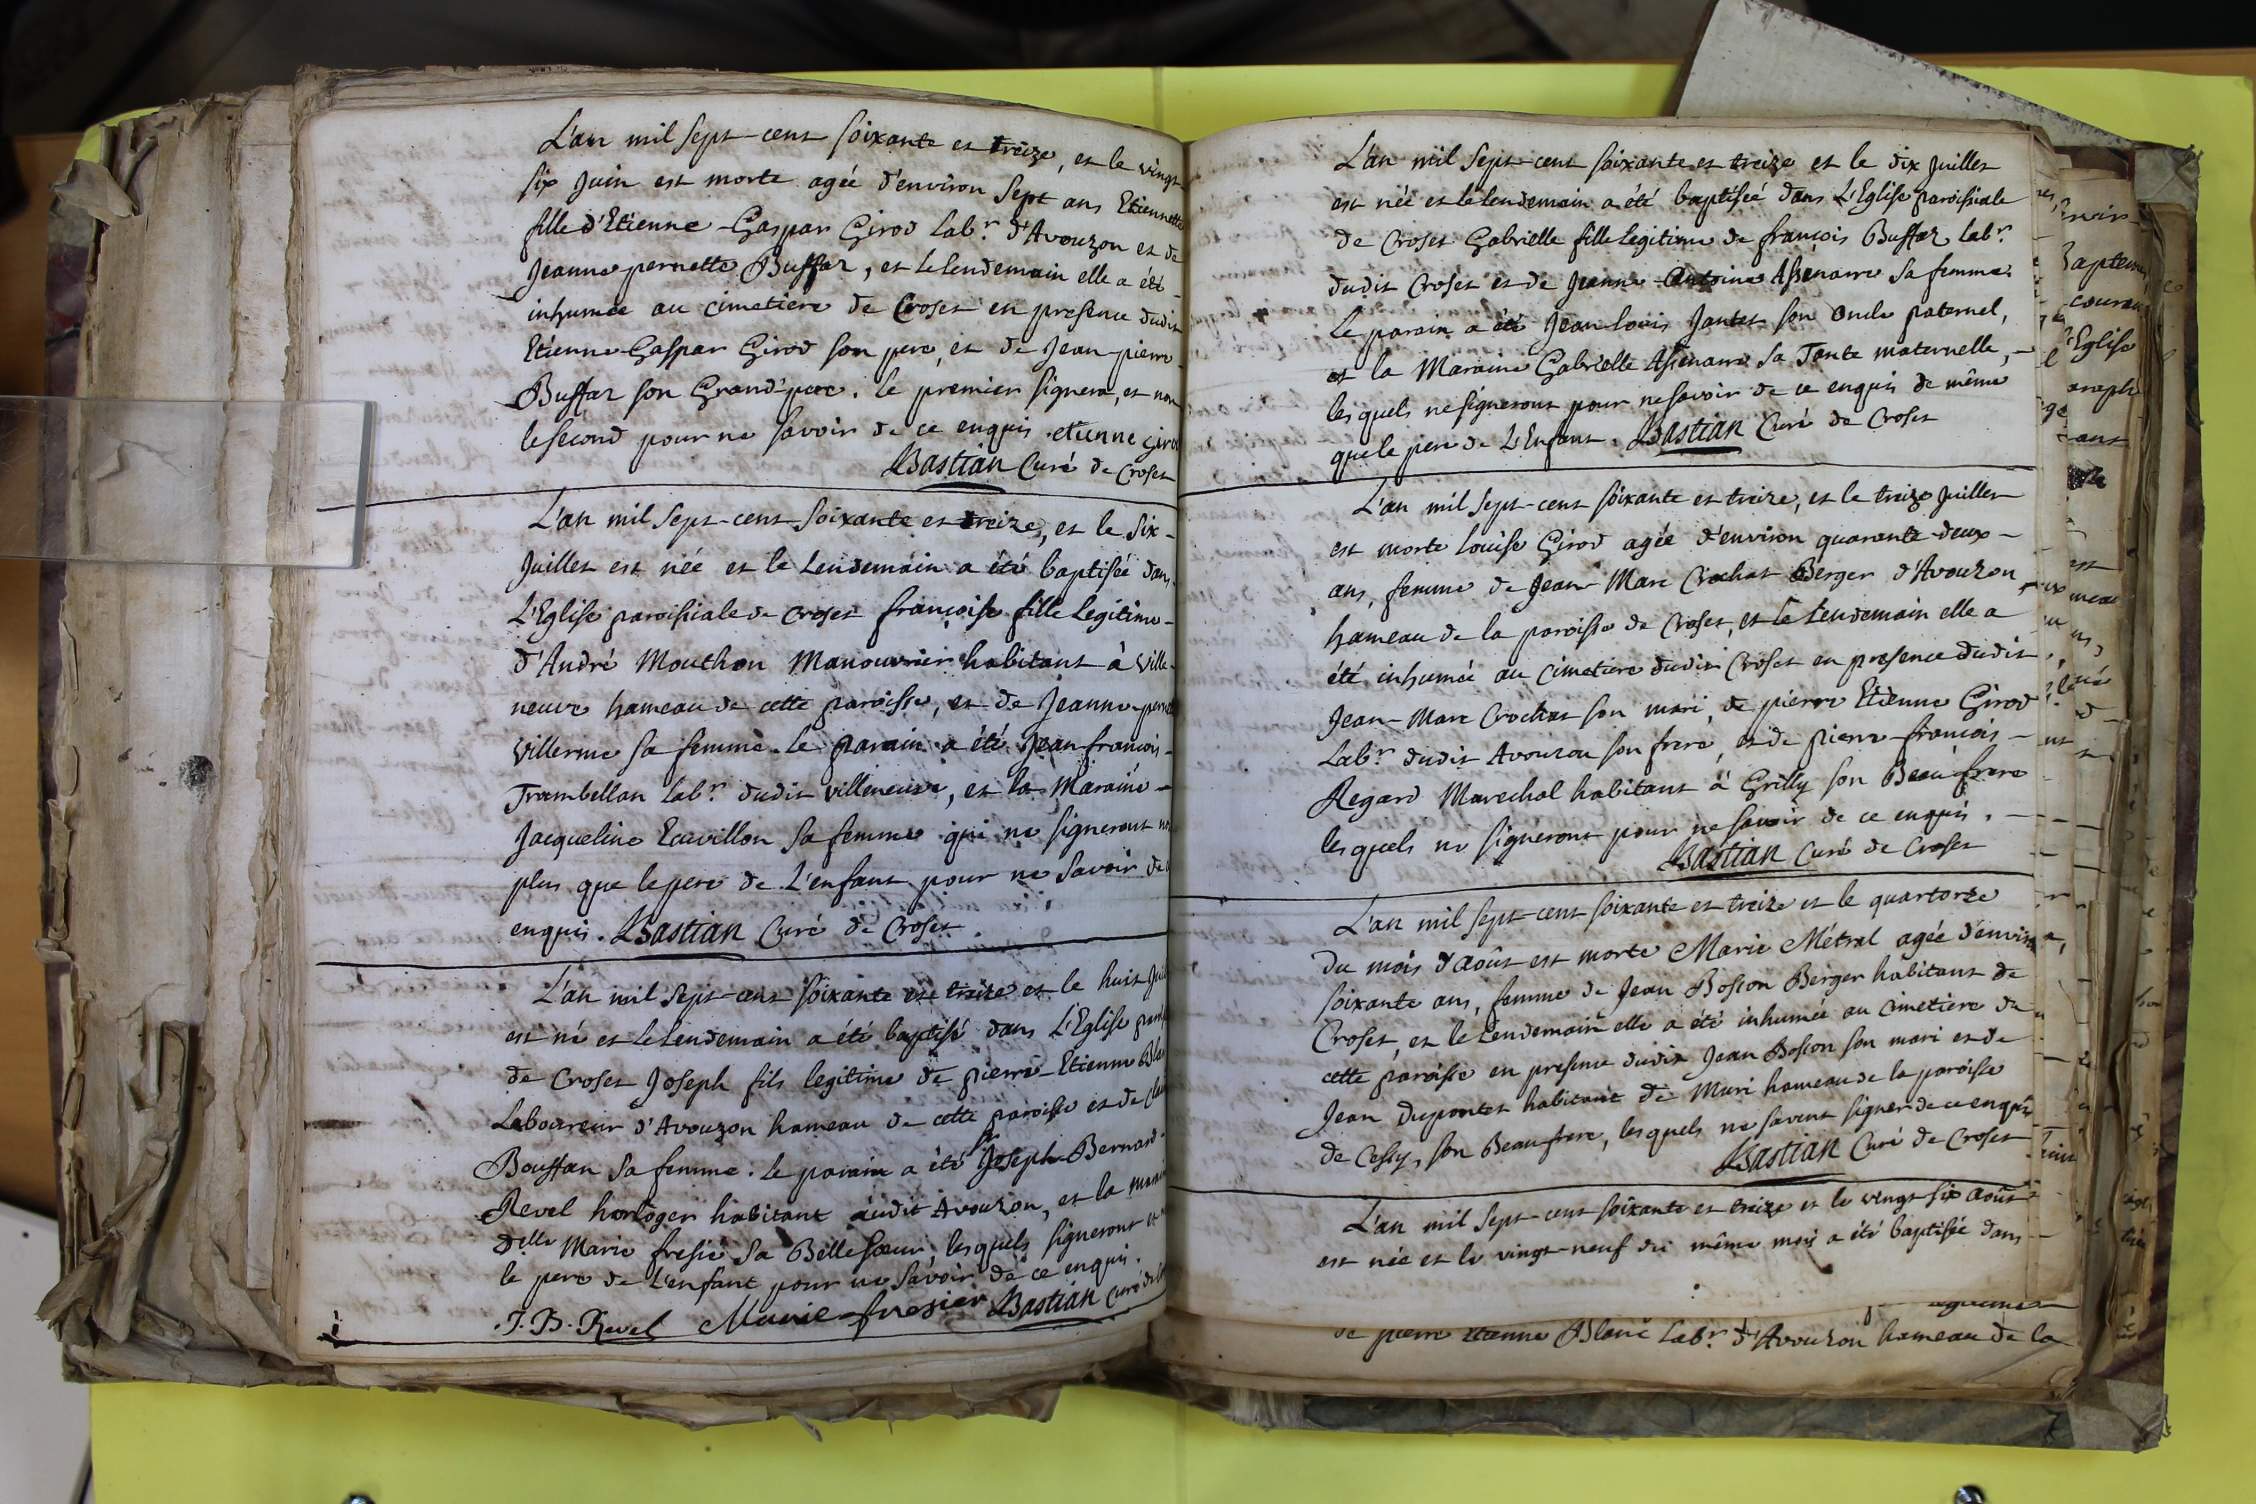 L'an mil sept-cent soixante et treize, et le vingt
six Juin est morte agée d'environ sept ans Etiennette
fille d'Etienne-Gaspar Girod Lab.r d'Avouzon et de
Jeanne pernette Buffaz, et le lendemain elle a été
inhumée au cimetiere de Croset en presence dudit
Etienne-Gaspar Girod son pere, et de Jean-pierre
Buffaz son Grand'pere. le premier signera, et non
le second pour ne savoir de ce enquis. etienne girod
Bastian Curé de Croset
L'an mil sept-cent soixante et treize, et le six
Juillet est née et le lendemain a été baptisée dans
L'Eglise paroissiale de Croset françoise fille Legitime
d'André Mouthon Manouvrier habitant à ville-
neuve hameau de cette paroisse, et de Jeanne
villerme sa femme. le parain a été Jean françois
Trambellan Lab.r dudit villeneuve, et la Maraine
Jacqueline sa femme qui ne signeront non
plus que le pere de L'enfant pour ne savoir de ce
enquis. Bastian Curé de Croset.
L'an mil sept-cent soixante et treize et le huit
est né et le lendemain a été baptisé dans L'Eglise
de Croset Joseph fils legitime de pierre-Etienne
Laboureur d'Avouzon hameau de cette paroisse et de
Bouffan sa femme. le parain a été Sr Joseph-Bernard
Revel horloger habitant audit Avouzon, et la
Delle Marie fresié sa Belle sœur, lesquels signeront et
le pere de L'enfant pour ne savoir de ce enquis.
J. B. Revel Marie fresier Bastian curé de
L'an mil sept-cent soixante et treize et le dix Juillet
est née et le lendemain a été baptisée dans L'Eglise paroissiale
de Croset Gabrielle fille Legitime de françois Buffaz lab.r
dudit Croset et de Jeanne-Antoine Assenare sa femme.
Le parain a été Jean-louis Jantet son oncle paternel,
et la Maraine Gabrielle Assenare sa Tante maternelle,
lesquels ne signeront pour ne savoir de ce enquis de même
que le pere de L'Enfant. Bastian Curé de Croset
L'an mil sept-cent soixante et treize, et le treize Juillet
est morte louise Girod agée d'environ quarante-deux
ans, femme de Jean-Marc Crochat Berger d'Avouzon
hameau de la paroisse de Croset, et le lendemain elle a
été inhumée au cimetiere dudit Croset en presence dudit
Jean-Marc Crochat son mari, de pierre Etienne Girod
Lab.r dudit Avouzon son frere, et de pierre-françois
Regard Marechal habitant à Grilly son Beau frere
lesquels ne signeront pour ne savoir de ce enquis.
Bastian Curé de Croset
L'an mil sept-cent soixante et treize et le quartorze
du mois d'août est morte Marie Métral agée d'environ
soixante ans, femme de Jean Boston Berger habitant de
Croset, et le lendemain elle a été inhumée au cimetiere de
cette paroisse en presence dudit Jean Boston son mari et de
Jean Dupontet habitant de Muri hameau de la paroisse
de Cessy, son Beau frere, lesquels ne savent signer de ce enquis
Bastian Curé de Croset
L'an mil sept-cent soixante et treize et le vingt six août
est née et le vingt-neuf du même mois a été baptisée dans
de pierre Etienne Blanc Lab.r d'Avouzon hameau de la